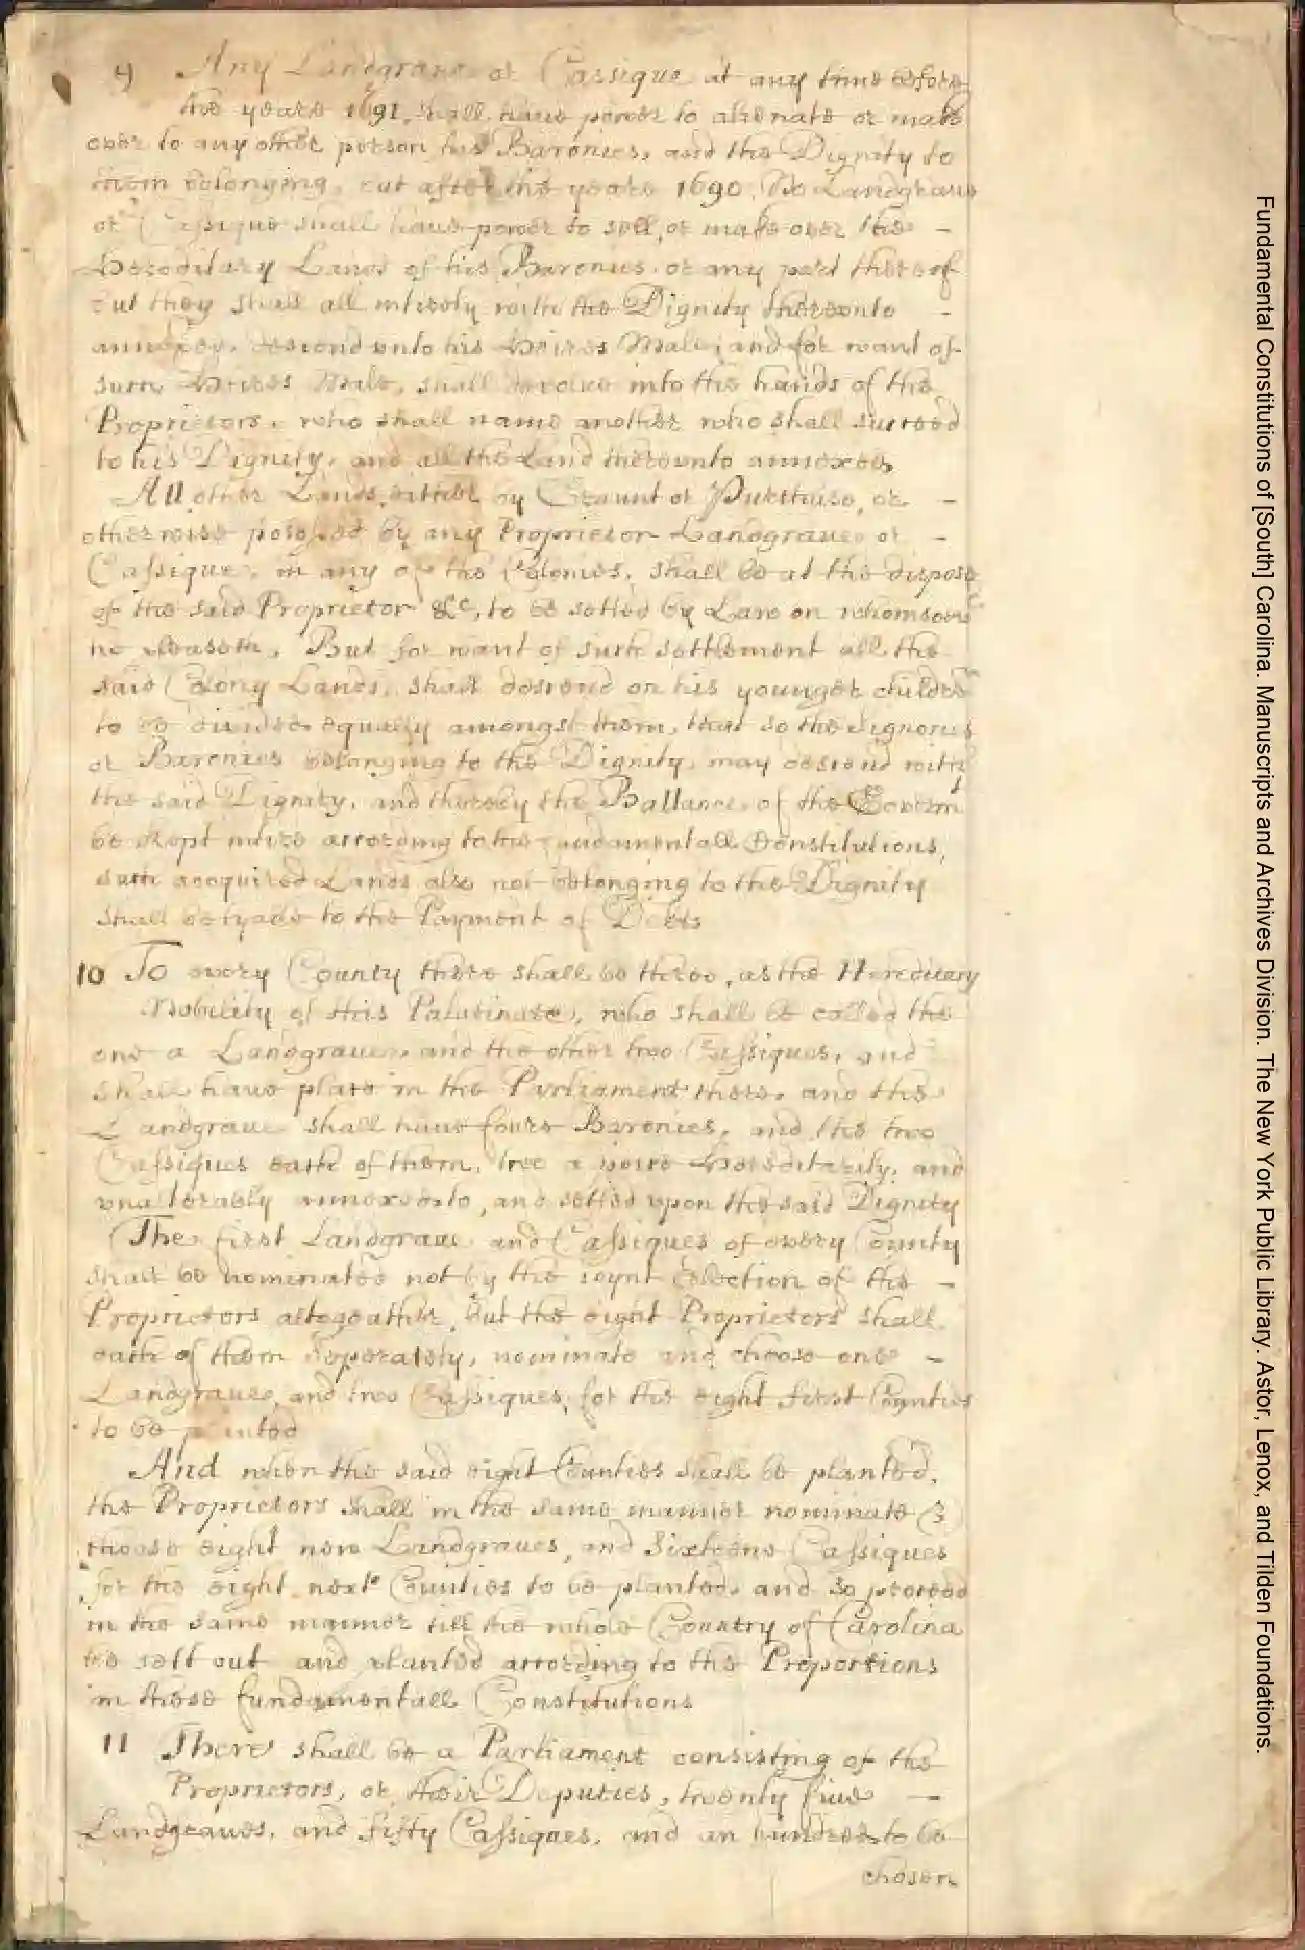 9 Any Landgrave or Cassique at any time before
the yeare 1691, shall have power to alienate or make
over to any other person his Baronies, and the Dignity to
them belonging, but after the yeare 1690, No Landgrave
or Cassique shall have power to sell, or make over the -
Hereditary Lands of his Baronies, or any part thereof
but they shall all intirely with the Dignity thereunto -
annexed, descend unto his Heires Male, and for want of
such Heires Male, shall devolve into the hands of the
Proprietors, who shall name another who shall succeed
to his Dignity, and all the Land thereunto annexed
All other Lands, either by Graunt or Purchase, or -
otherwise possessed by any Proprietor Landgrave or -
Cassique, in any of the Colonies, shall be at the dispose
of the said Proprietor &c, to be setled by Law on whomsoever
he pleaseth, But for want of such settlement all the
said Colony Lands, shall descend on his younger children
to be divided equally amongst them, that so the Signories
or Baronies belonging to the Dignity, may descend with
the said Dignity, and thereby the Ballance of the Governmt
be kept intire according to the Fundamentall Constitutions,
such acquired Lands also not belonging to the Dignity
shall be lyable to the Payment of Debts
10 To every County there shall be three, as the Hereditary
Nobility of this Palatinate, who shall be called the
one a Landgrave, and the other two Cassiques, and
shall have place in the Parliament there, and the
Landgrave shall have foure Baronies, and the two
Cassiques each of them, two a peice Hereditarily, and
unalterably annexed to, and setled upon the said Dignity
The first Landgrave and Cassiques of every County
shall be nominated not by the joynt Election of the -
Proprietors altogeather, but the eight Proprietors shall
each of them Seperately, nominate and choose one -
Landgrave, and two Cassiques, for the eight first Counties
to be planted
And when the said eight Counties shall be planted,
the Proprietors shall in the same manner nominate &
choose eight new Landgraves, and Sixteene Cassiques
for the eight next Counties to be planted, and so proceed
in the same manner till the whole Country of Carolina
be sett out and planted according to the Proportions
in these fundamentall Constitutions
11 There shall be a Parliament consisting of the
Proprietors, or their Deputies, twenty five -
Landgraves, and fifty Cassiques, and an hundred to be
chosen
Fundamental Constitutions of [South] Carolina. Manuscripts and Archives Division. The New York Public Library. Astor, Lenox, and Tilden Foundations.